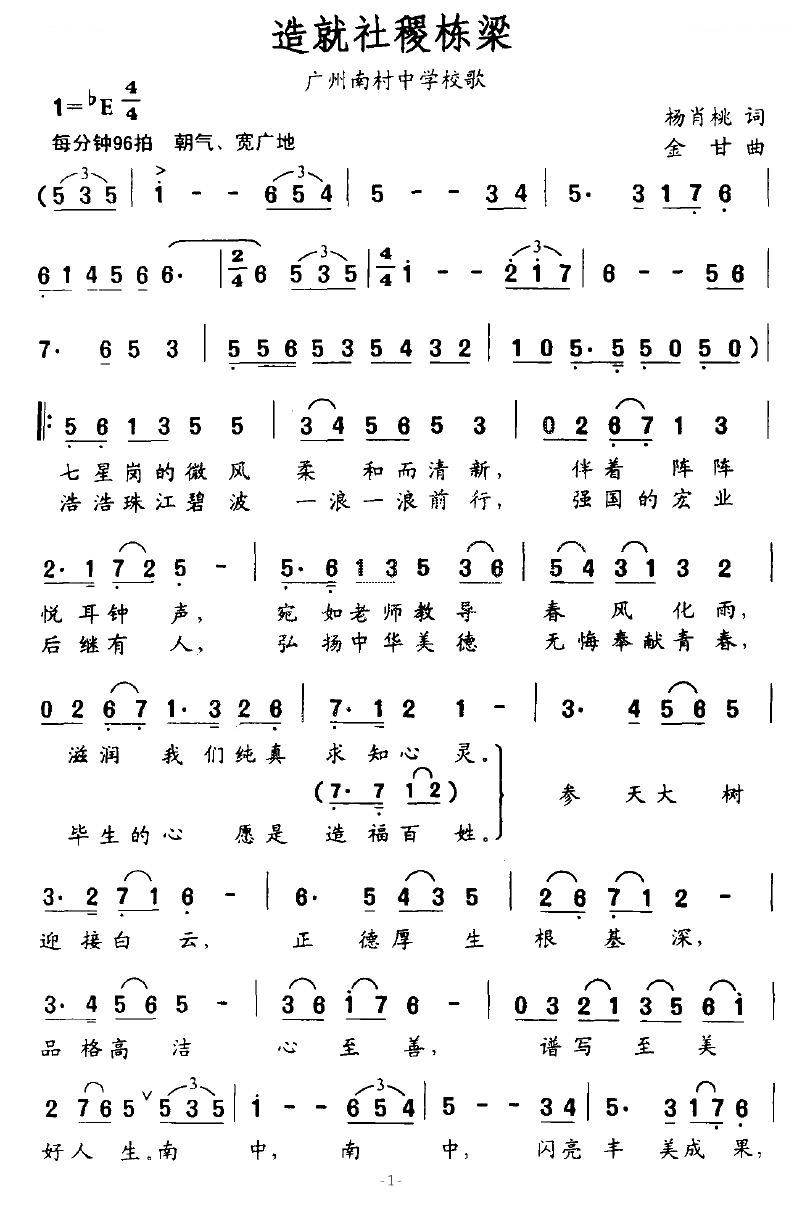 造就社稷栋梁
广州南村中学校歌
1=♭E 4/4
杨肖桃 词
每分钟96拍 朝气、宽广地
金 甘 曲
(5 3 5 | 1 - - 6 5 4 | 5 - - 3 4 | 5· 3 1 7 6 |
6 1 4 5 6 6 6· | 2/4 6 5 3 5 | 4/4 1 - - 2 1 7 | 6 - - 5 6 |
7· 6 5 3 | 5 5 6 5 3 5 4 3 2 | 1 0 5· 5 5 0 5 0 ) |
5 6 1 3 5 5 | 3 4 5 6 5 3 | 0 2 6 7 1 3 |
七星岗的微风 柔 和而清新， 伴着 阵阵
浩浩珠江碧波 一浪一浪前行， 强国的宏业
2· 1 7 2 5 - | 5· 6 1 3 5 3 6 | 5 4 3 1 3 2 |
悦耳钟 声， 宛 如老师教导 春 风 化雨，
后继有 人， 弘 扬中华美德 无悔奉献青春，
0 2 6 7 1· 3 2 6 | 7· 1 2 1 - | 3· 4 5 6 5 |
滋润 我们纯真 求知心 灵。
(7· 7 1 2) 参 天大 树
毕生的心 愿是 造福百 姓。
3· 2 7 1 6 - | 6· 5 4 3 5 | 2 6 7 1 2 - |
迎接白 云， 正 德厚 生 根 基 深，
3· 4 5 6 5 - | 3 6 1 7 6 - | 0 3 2 1 3 5 6 1 |
品格高 洁 心 至 善， 谱写 至 美
2 7 6 5 ∨ 5 3 5 | 1 - - 6 5 4 | 5 - - 3 4 | 5· 3 1 7 6 |
好人 生。南 中， 南 中， 闪亮 丰 美成 果，
-1-